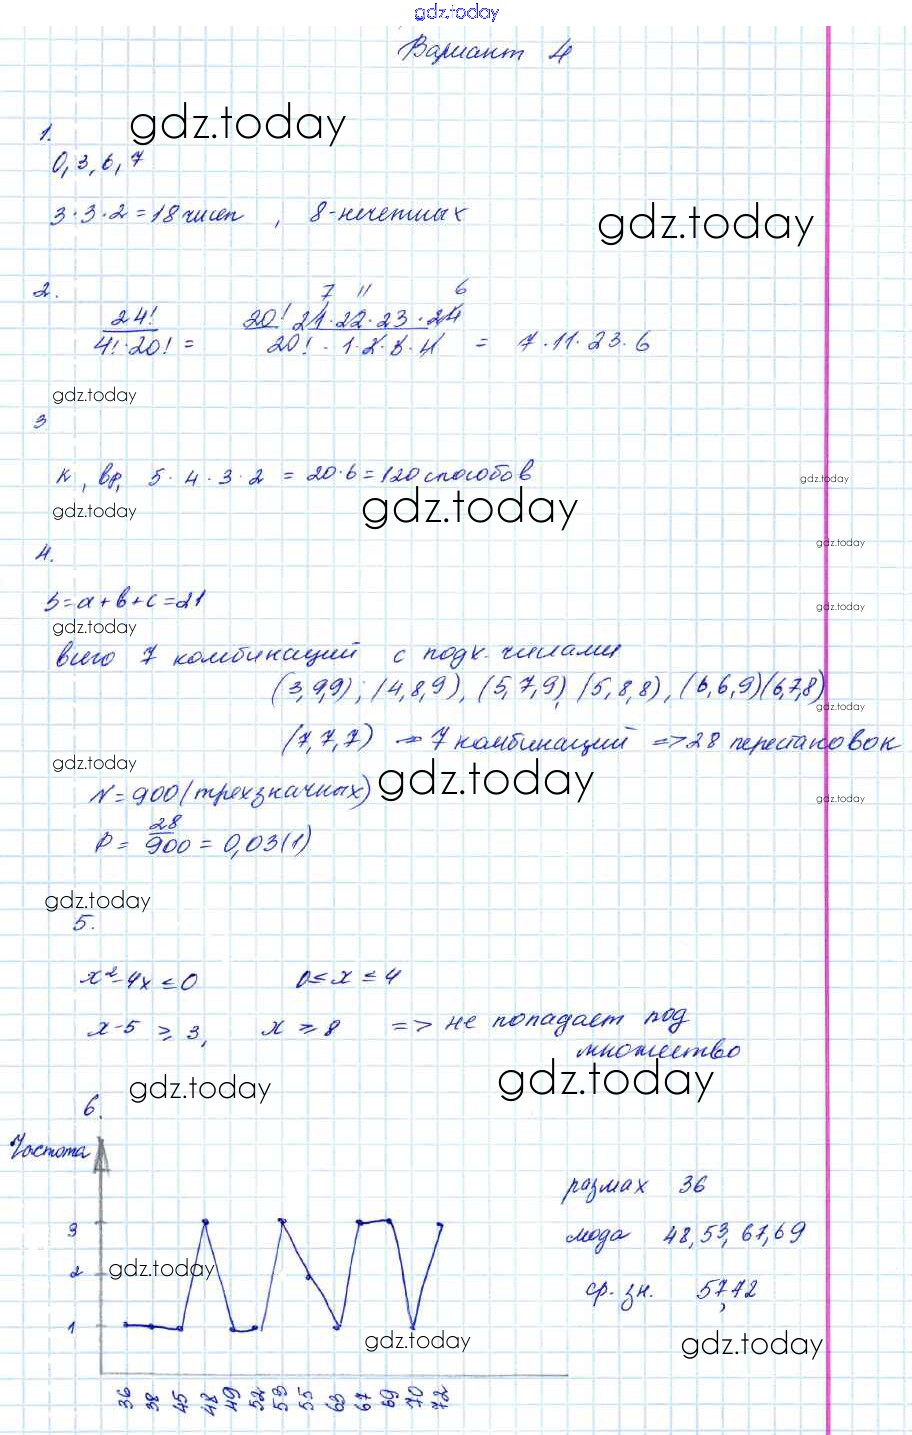 gdz.today
Вариант 4
1.
gdz.today
0, 3, 6, 7
3·3·2=18 чисел , 8-нечетных
gdz.today
2.
7 11 6
24! 20! 21·22·23·24
4!·20! = 20! · 1·2·3·4 = 7·11·23·6
gdz.today
3
к, вр, 5·4·3·2 = 20·6=120 способов
gdz.today
gdz.today
gdz.today
gdz.today
4.
S=a+b+c=21
gdz.today
gdz.today
всего 7 комбинаций с подх. числами
(3,9,9); (4,8,9), (5,7,9), (5,8,8), (6,6,9)(6,7,8)
gdz.today
(7,7,7) => 7 комбинаций => 28 перестановок
gdz.today
gdz.today
N=900 (трехзначных)
gdz.today
28
P= 900 = 0,03(1)
gdz.today
5.
x²-4x ≤ 0 0≤ x ≤ 4
x-5 ≥ 3, x ≥ 8 => не попадает под
множество
gdz.today
gdz.today
6.
Частота
размах 36
3
мода 48, 53, 67, 69
2
gdz.today
ср. зн. 57,42
1
gdz.today
gdz.today
36 38 45 48 49 52 53 55 63 67 69 70 72